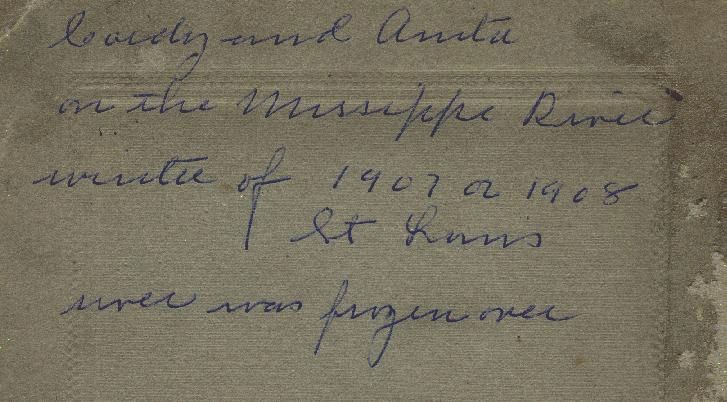 and Anita
on the Mississippi River
winter of 1907 or 1908
St Louis
river was frozen over